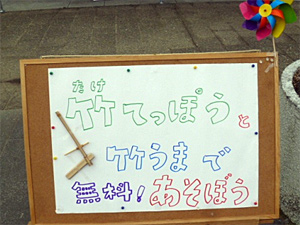 たけ
竹てっぽうと
竹うまで
無料!あそぼう